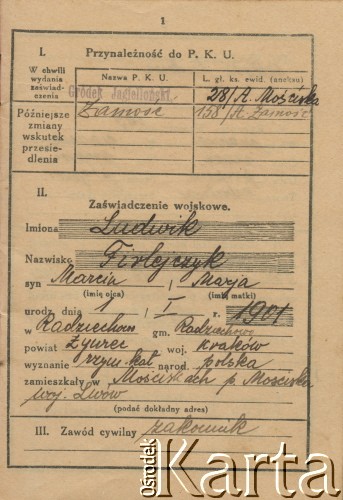 1
I. Przynależność do P. K. U.
W chwili wydania zaświadczenia
Nazwa P. K. U.
L. gł. ks. ewid. (aneksu)
Gródek Jagielloński
28/A. Mościska
Późniejsze zmiany wskutek przesiedlenia
Zamość
158/A. Zamość
II.
Zaświadczenie wojskowe.
Imiona Ludwik
Nazwisko Firlejczyk
syn Marcin i Marja
(imię ojca) (imię matki)
urodz. dnia 1 I r. 1901
w Radziechow gm. Radziechowy
powiat Żywiec woj. Kraków
wyznanie rzym. kat. narod. polska
zamieszkały w Mościskach p. Mościska
woj. Lwów
(podać dokładny adres)
III. Zawód cywilny
Ośrodek Karta